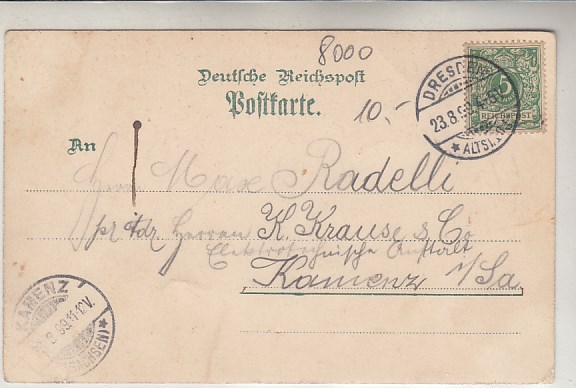 8000
Deutsche Reichspost
Postkarte.
10.-
DRESDEN
23.8.99.
* ALTST.
5
REICHSPOST
An
Herrn Max Radelli
pr Adr. Herren K. Krause & Co
Elektrotechnische Anstalt
Kamenz i/Sa.
KAMENZ
8 99.11-12V.
(SACHSEN) *